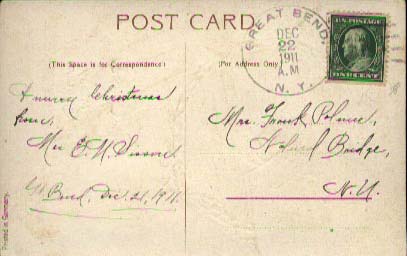 POST CARD
GREAT BEND,
DEC
22
1911
A.M
N. Y.
U.S. POSTAGE
ONE CENT
(This Space is for Correspondence)
(For Address Only)
A merry Christmas
from,
Mrs E. N.
Gt Bend, Dec. 21, 1911.
Mrs. Frank
Natural Bridge,
N.Y.
Printed in Germany.